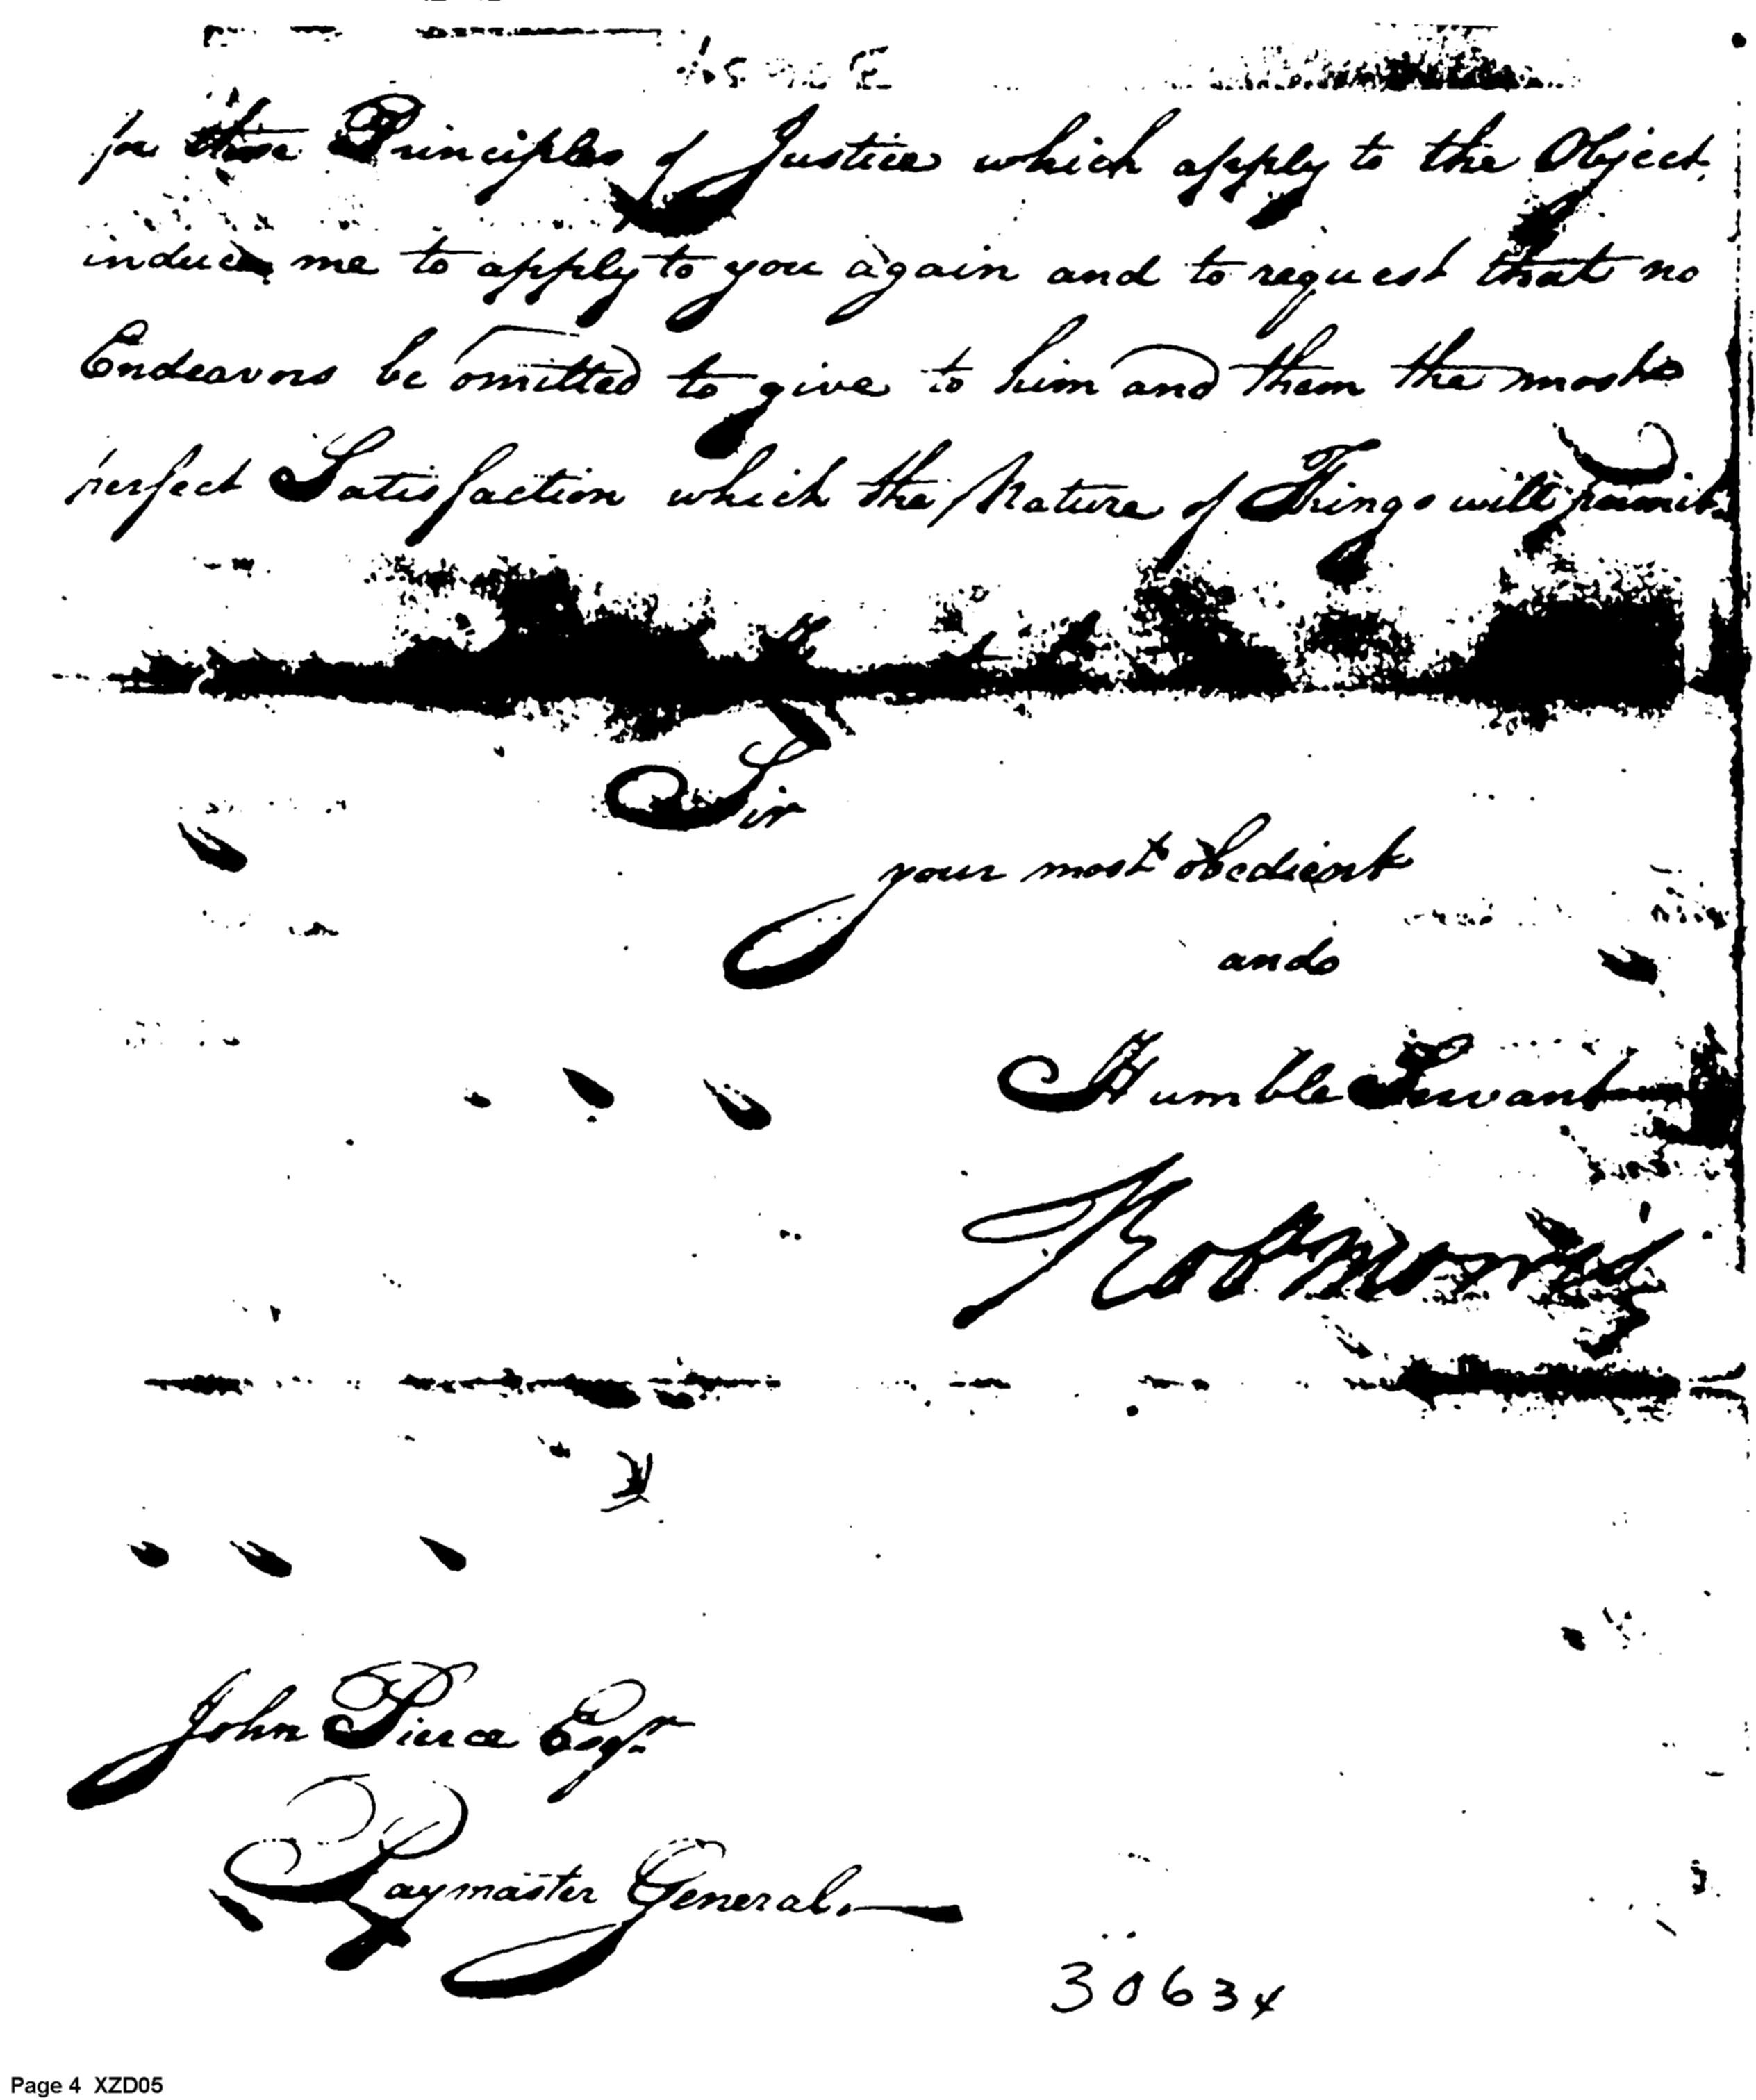 for those Principles of Justice which apply to the Object,
induces me to apply to you again and to request that no
Endeavors be omitted to give to him and them the most
perfect Satisfaction which the Nature of Things will permit.
Sir
your most obedient
and
Humble Servant
Robt Morris
John Pierce Esqr
Paymaster General.
30634
Page 4 XZD05